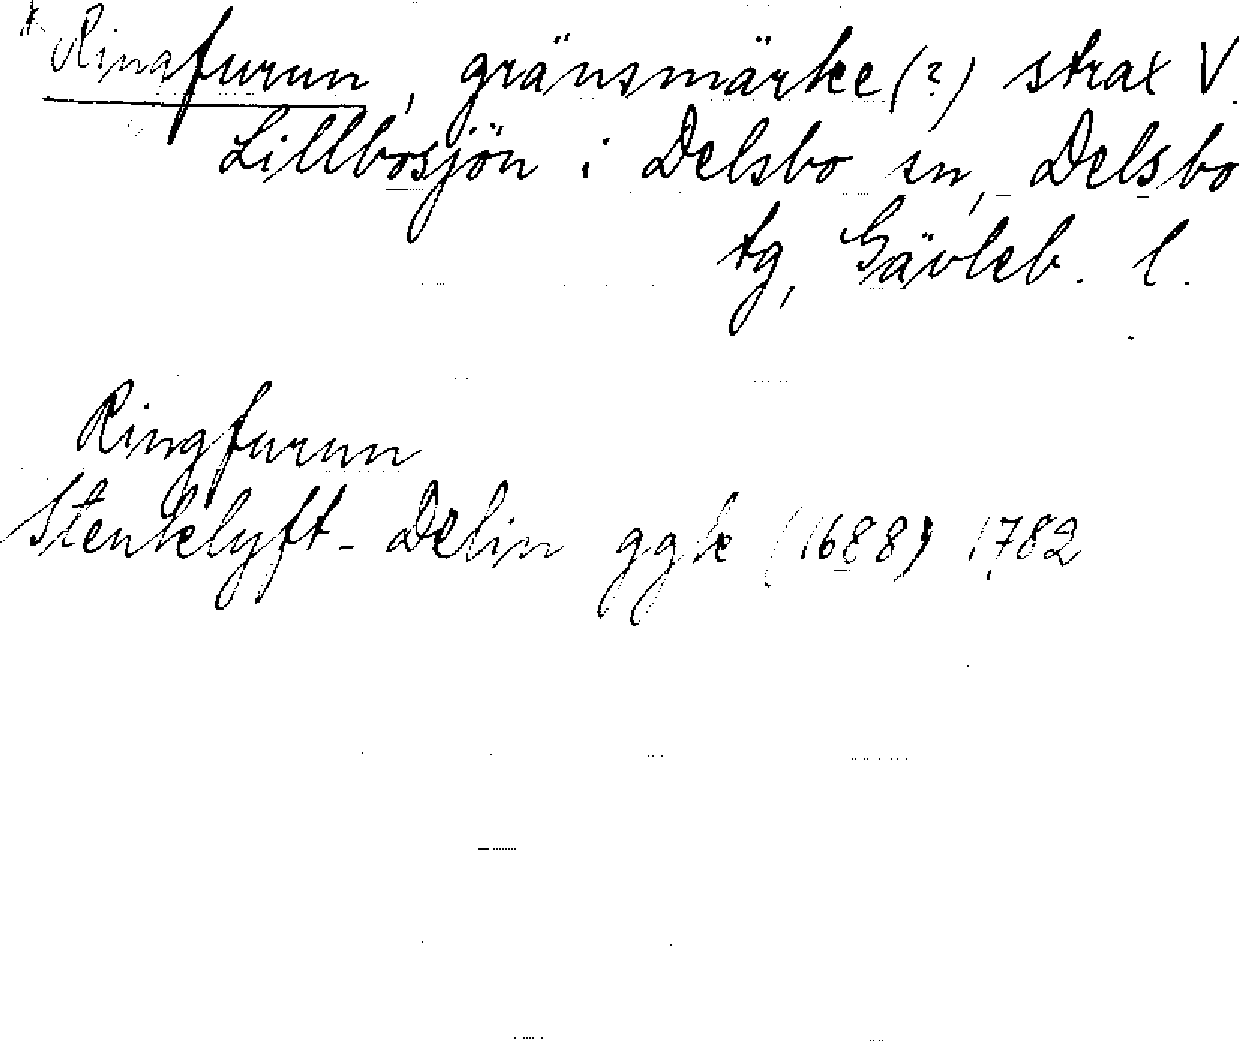 * Ringfurun, gränsmärke (?) strax V.
Lillbosjön i Delsbo sn, Delsbo
tg, Gävleb. l.
Ringfurun
Stenklyft- Delin ggk (1688) 1782